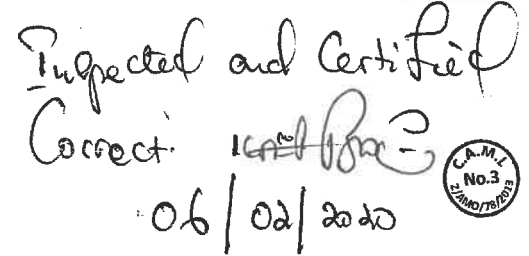 Inspected and Certified
Correct.
C.A.M.L
No.3
Z/AMO/78/2013
06/02/2020